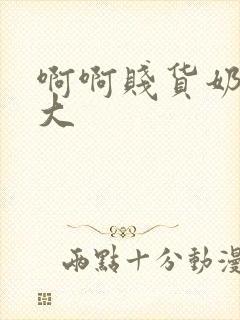 啊啊賤貨奶
大
兩點十分動漫